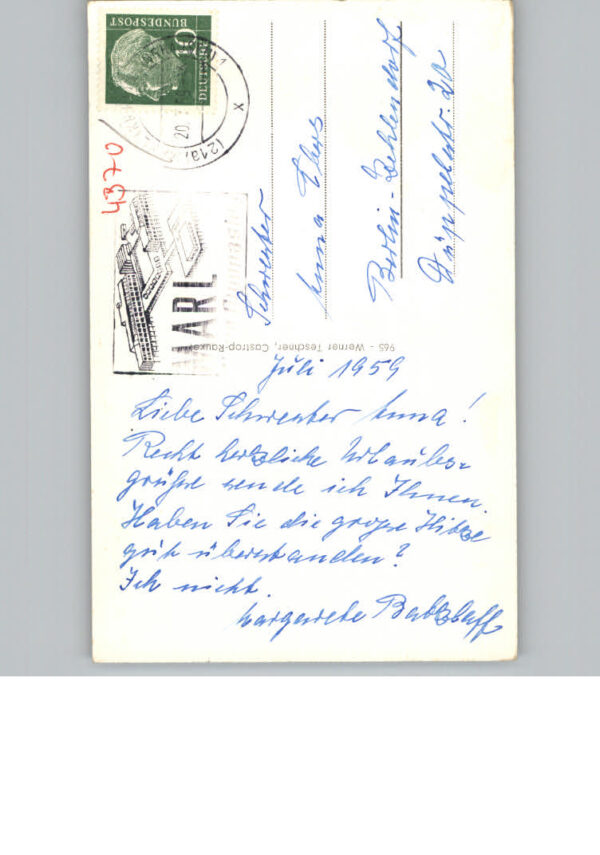 Juli 1959
Liebe Schwester Anna!
Recht herzliche Urlaubs-
grüße sende ich Ihnen.
Haben Sie die große Hitze
gut überstanden?
Ich nicht.
Margarete
Schwester
Anna
Berlin-Zehlendorf
Düppelstr. 20
965 - Werner Teschner, Castrop-Rauxel
10
DEUTSCHE
BUNDESPOST
(21a)
20
MARL
4370